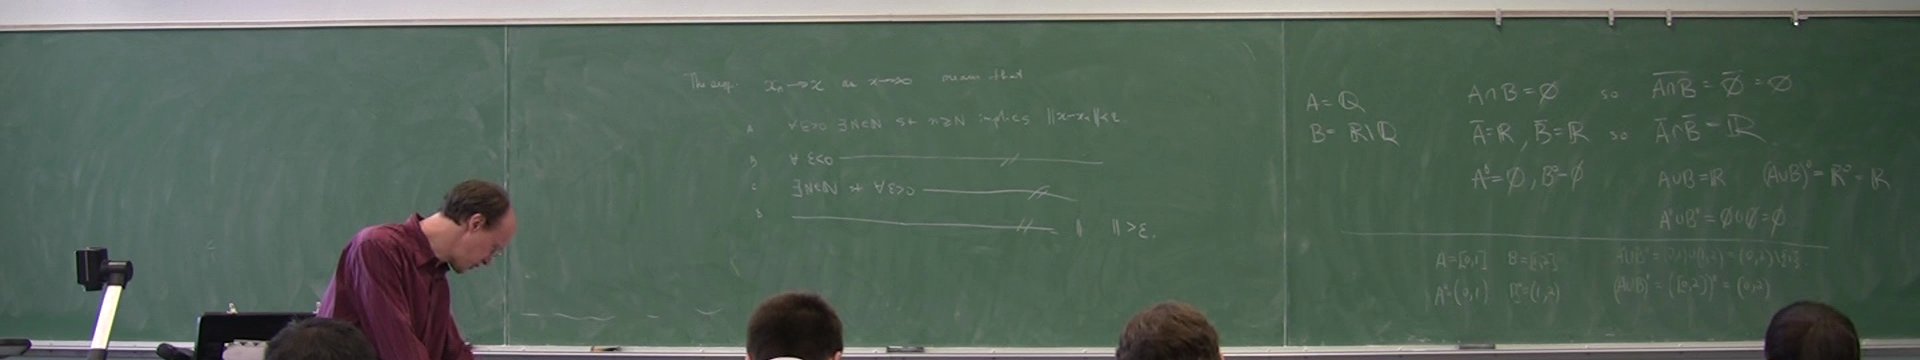 The seq. xₙ→x as x→∞ means that
A ∀ε>0 ∃N∈ℕ st n≥N implies ‖x-xₙ‖<ε.
B ∀ε<0 ————//————
C ∃N∈ℕ st ∀ε>0 ————//————
D ————//———— ‖ ‖>ε.
A=ℚ
B=ℝ\ℚ
A∩B=∅ so \overline{A∩B} = \overline{∅} = ∅
Ā=ℝ, B̄=ℝ so Ā∩B̄=ℝ
A°=∅, B°=∅ A∪B=ℝ (A∪B)°=ℝ°=ℝ
A°∪B°=∅∪∅=∅
A=[0,1] B=[1,2] A°∪B°=(0,1)∪(1,2)=(0,2)\{1}.
A°=(0,1) B°=(1,2) (A∪B)°=([0,2])°=(0,2)